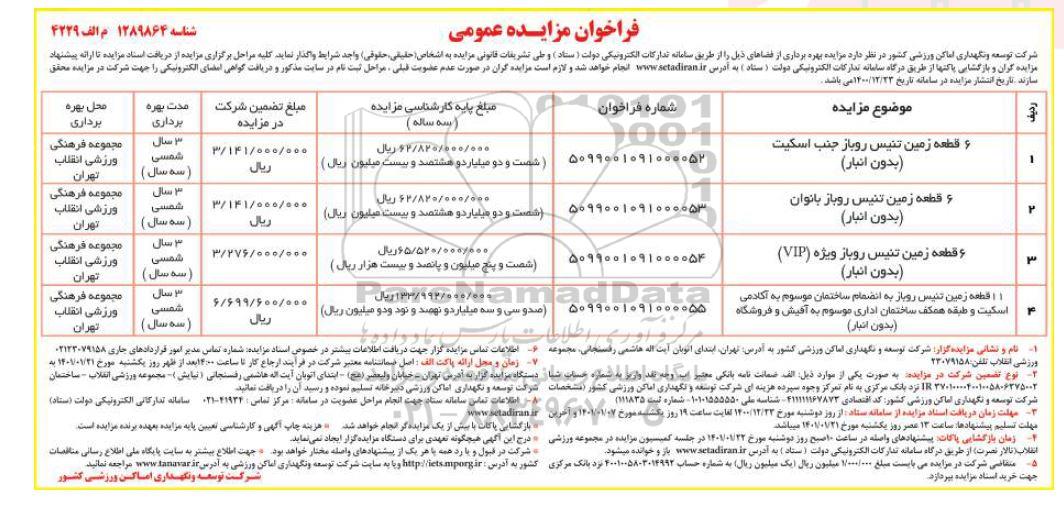 فراخوان مزایده عمومی
شناسه ۱۲۸۹۸۶۴ م الف ۴۲۲۹
شرکت توسعه ونگهداری اماکن ورزشی کشور در نظر دارد مزایده بهره برداری از فضاهای ذیل را از طریق سامانه تدارکات الکترونیکی دولت ( ستاد ) و طی تشریفات قانونی مزایده به اشخاص(حقیقی،حقوقی) واجد شرایط واگذار نماید. کلیه مراحل برگزاری مزایده از دریافت اسناد مزایده تا ارائه پیشنهاد
مزایده گران و بازگشایی پاکتها از طریق درگاه سامانه تدارکات الکترونیکی دولت ( ستاد ) به آدرس www.setadiran.ir انجام خواهد شد و لازم است مزایده گران در صورت عدم عضویت قبلی ، مراحل ثبت نام در سایت مذکور و دریافت گواهی امضای الکترونیکی را جهت شرکت در مزایده محقق
سازند .تاریخ انتشار مزایده در سامانه تاریخ ۱۴۰۰/۱۲/۲۳می باشد .
ردیف موضوع مزایده شماره فراخوان مبلغ پایه کارشناسی مزایده ( سه ساله ) مبلغ تضمین شرکت در مزایده مدت بهره برداری محل بهره برداری
۱ ۶ قطعه زمین تنیس روباز جنب اسکیت (بدون انبار) ۵۰۹۹۰۰۱۰۹۱۰۰۰۰۵۲ ۶۲/۸۲۰/۰۰۰/۰۰۰ ریال ( شصت و دو میلیاردو هشتصد و بیست میلیون ریال ) ۳/۱۴۱/۰۰۰/۰۰۰ ریال ۳ سال شمسی ( سه سال ) مجموعه فرهنگی ورزشی انقلاب تهران
۲ ۶ قطعه زمین تنیس روباز بانوان (بدون انبار) ۵۰۹۹۰۰۱۰۹۱۰۰۰۰۵۳ ۶۲/۸۲۰/۰۰۰/۰۰۰ ریال (شصت و دو میلیاردو هشتصد و بیست میلیون ریال) ۳/۱۴۱/۰۰۰/۰۰۰ ریال ۳ سال شمسی ( سه سال ) مجموعه فرهنگی ورزشی انقلاب تهران
۳ ۶قطعه زمین تنیس روباز ویژه (VIP) (بدون انبار) ۵۰۹۹۰۰۱۰۹۱۰۰۰۰۵۴ ۶۵/۵۲۰/۰۰۰/۰۰۰ریال (شصت و پنج میلیون و پانصد و بیست هزار ریال ) ۳/۲۷۶/۰۰۰/۰۰۰ ریال ۳ سال شمسی ( سه سال ) مجموعه فرهنگی ورزشی انقلاب تهران
۴ ۱۱قطعه زمین تنیس روباز به انضمام ساختمان موسوم به آکادمی اسکیت و طبقه همکف ساختمان اداری موسوم به آفیش و فروشگاه (بدون انبار) ۵۰۹۹۰۰۱۰۹۱۰۰۰۰۵۵ ۱۳۳/۹۹۲/۰۰۰/۰۰۰ریال (صدو سی و سه میلیاردو نهصد و نود ودو میلیون ریال) ۶/۶۹۹/۶۰۰/۰۰۰ ریال ۳ سال شمسی ( سه سال ) مجموعه فرهنگی ورزشی انقلاب تهران
۱- نام و نشانی مزایده‌گزار: شرکت توسعه و نگهداری اماکن ورزشی کشور به آدرس: تهران، ابتدای اتوبان آیت اله هاشمی رفسنجانی، مجموعه
ورزشی انقلاب تلفن:۲۳۰۷۹۱۵۸
۲- نوع تضمین شرکت در مزایده: به صورت یکی از موارد ذیل: الف. ضمانت نامه بانکی معتبر ب. وجه نقد واریز به شماره حساب شبا
IR ۳۷۰۱۰۰۰۰۴۰۰۱۰۰۵۸۰۶۳۷۵۰۰۲ نزد بانک مرکزی به نام تمرکز وجوه سپرده هزینه ای شرکت توسعه و نگهداری اماکن ورزشی کشور (مشخصات
شرکت توسعه و نگهداری اماکن ورزشی کشور: کد اقتصادی ۴۱۱۱۱۱۱۶۷۸۷۳ – شناسه ملی ۱۰۱۰۱۵۵۵۵۵۰ – شماره ثبت ۱۱۱۸۳۵)
۳- مهلت زمان دریافت اسناد مزایده از سامانه ستاد : از روز دوشنبه مورخ ۱۴۰۰/۱۲/۲۳ لغایت ساعت ۱۹ روز یکشنبه مورخ ۱۴۰۱/۰۱/۰۷ و آخرین
مهلت تسلیم پیشنهادها: ساعت ۱۳ عصر روز یکشنبه مورخ ۱۴۰۱/۰۱/۲۱ میباشد.
۴- زمان بازگشایی پاکات: پیشنهادهای واصله در ساعت ۱۰صبح روز دوشنبه مورخ ۱۴۰۱/۰۱/۲۲ در جلسه کمیسیون مزایده در مجموعه ورزشی
انقلاب(تالار نصرت) از طریق درگاه سامانه تدارکات الکترونیکی دولت ( ستاد ) به آدرس www.setadiran.ir باز و خوانده میشود.
۵- متقاضی شرکت در مزایده می بایست مبلغ ۱/۰۰۰/۰۰۰ میلیون ریال (یک میلیون ریال) به شماره حساب ۴۰۰۱۰۰۵۸۰۳۰۱۴۹۹۲ نزد بانک مرکزی
جهت خرید اسناد مزایده بپردازد.
۶- اطلاعات تماس مزایده گزار جهت دریافت اطلاعات بیشتر در خصوص اسناد مزایده: شماره تماس مدیر امور قراردادهای جاری ۰۲۱۲۳۰۷۹۱۵۸
۷- زمان و محل ارائه پاکت الف : اصل ضمانتنامه معتبر شرکت در فرآیند ارجاع کار تا ساعت ۱۴:۰۰بعد از ظهر روز یکشنبه مورخ ۱۴۰۱/۰۱/۲۱ به
دستگاه مزایده گزار به آدرس تهران – خیابان ولیعصر (عج) – ابتدای اتوبان آیت اله هاشمی رفسنجانی ( نیایش ) – مجموعه ورزشی انقلاب – ساختمان
شرکت توسعه و نگهداری اماکن ورزشی دبیرخانه تسلیم نموده و رسید آن را دریافت نمائید.
۸- اطلاعات تماس سامانه ستاد جهت انجام مراحل عضویت در سامانه : مرکز تماس : ۴۱۹۳۴-۰۲۱ سامانه تدارکاتی الکترونیکی دولت (ستاد)
www.setadiran.ir
بازگشایی پاکات با بیش از یک مزایده‌گر انجام خواهد شد. هزینه چاپ آگهی و کارشناسی تعیین پایه مزایده بعهده برنده مزایده است.
درج این آگهی هیچگونه تعهدی برای دستگاه مزایده‌گزار ایجاد نمی‌نماید.
شرکت در قبول و یا رد همه یا هر یک از پیشنهادهای واصله مختار خواهد بود. جهت اطلاع بیشتر به سایت پایگاه ملی اطلاع رسانی مناقصات
کشور به آدرس : http://iets.mporg.ir ویا به سایت شرکت توسعه ونگهداری اماکن ورزشی به آدرس www.tanavar.ir مراجعه نمائید.
شرکت توسعه ونگهداری اماکن ورزشی کشور
ParsNamadData